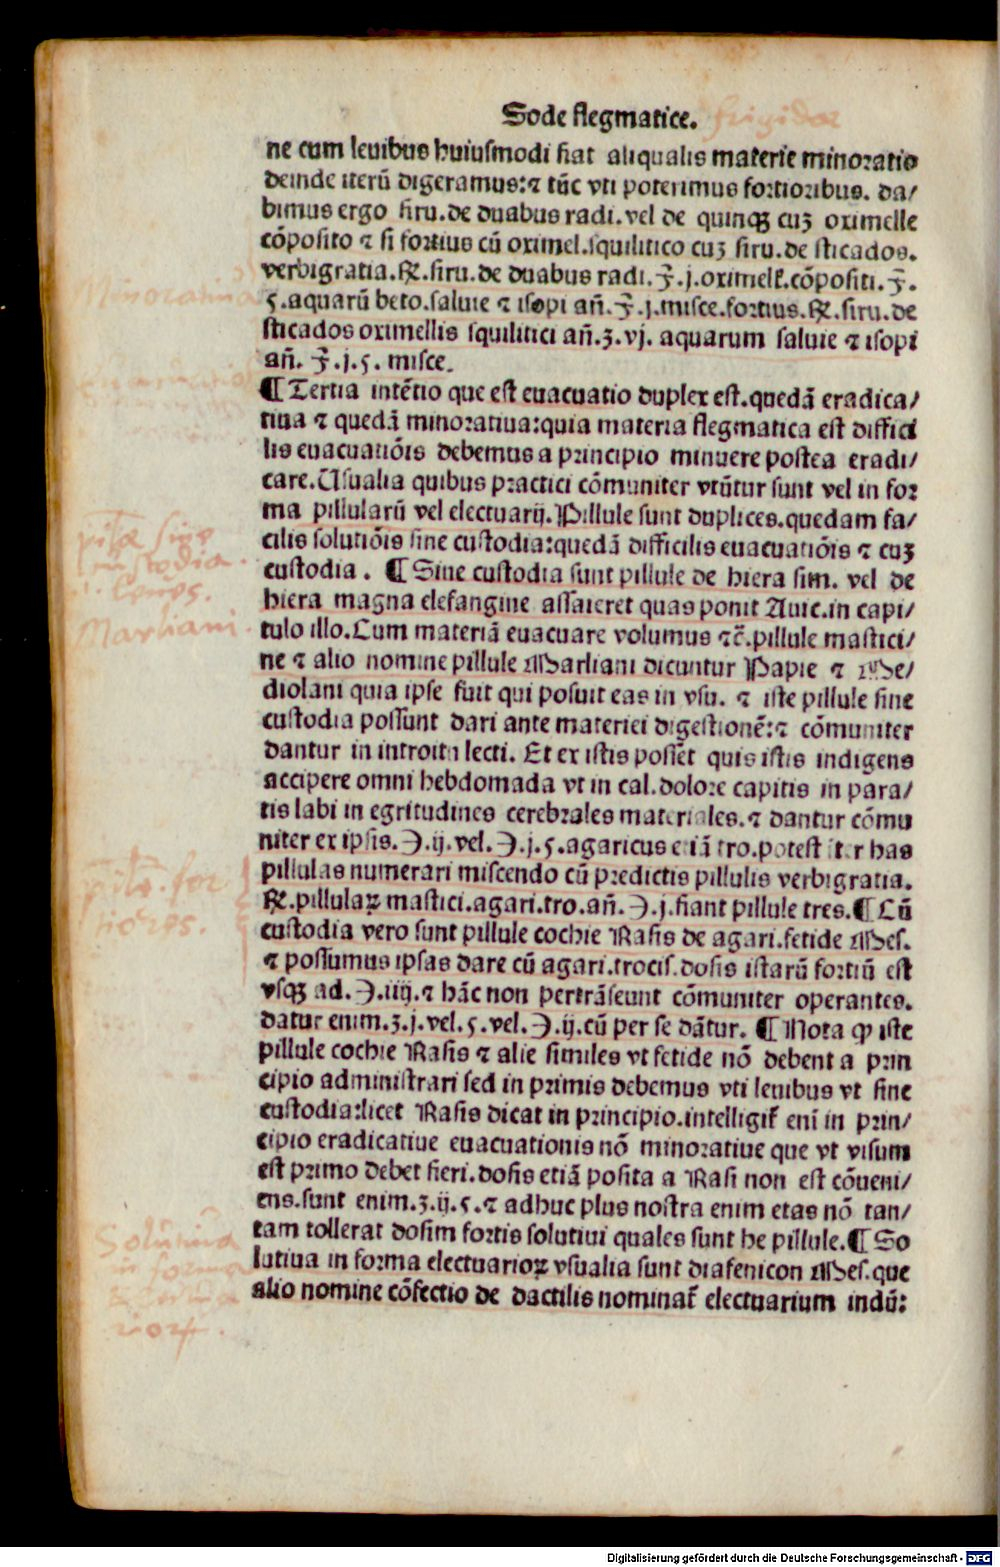 Sode flegmatice. frigidae
ne cum leuibus huiusmodi fiat aliqualis materie minoratio
deinde iterũ digeramus:⁊ tũc vti poterimus fortioribus. da/
bimus ergo siru.de duabus radi.vel de quinqꝫ cuꝫ oximelle
cõposito ⁊ si fortius cũ oximel.squilitico cuꝫ siru.de sticados.
verbigratia.℞.siru.de duabus radi.℥.j.oximell̃.cõpositi.℥.
ʒ.aquarũ beto.saluie ⁊ isopi añ.℥.j.misce.fortius.℞.siru.de
sticados oximellis squilitici añ.ʒ.vj. aquarum saluie ⁊ isopi
añ. ℥.j.ʒ. misce.
¶ Tertia intẽtio que est euacuatio duplex est.quedã eradica/
tiua ⁊ quedã minoratiua:quia materia flegmatica est diffici
lis euacuatiõis debemus a principio minuere postea eradi/
care.Usualia quibus practici cõmuniter vtũtur sunt vel in for
ma pillularũ vel electuarij.Pillule sunt duplices.quedam fa/
cilis solutiõis sine custodia:quedã difficilis euacuatiõis ⁊ cuꝫ
custodia . ¶ Sine custodia sunt pillule de hiera sim. vel de
hiera magna elefangine assaieret quas ponit Auic.in capi/
tulo illo.Cum materiã euacuare volumus ⁊c̃.pillule mastici/
ne ⁊ alio nomine pillule Marliani dicuntur Papie ⁊ Me/
diolani quia ipse fuit qui posuit eas in vsu. ⁊ iste pillule sine
custodia possunt dari ante materiei digestionẽ:⁊ cõmuniter
dantur in introitu lecti. Et ex istis possẽt quis istis indigens
accipere omni hebdomada vt in cal.dolore capitis in para/
tis labi in egritudines cerebrales materiales.⁊ dantur cõmu
niter ex ipsis.℈.ij.vel.℈.j.ʒ.agaricus etiã tro.potest iter has
pillulas numerari miscendo cũ predictis pillulis verbigratia.
℞.pillulaꝝ mastici.agari.tro.añ.℈.j.fiant pillule tres.¶ Cũ
custodia vero sunt pillule cochie Rasis de agari.fetide Mes.
⁊ possumus ipsas dare cũ agari.trocis.dosis istarũ fortiũ est
vsqꝫ ad.℈.iiij.⁊ hãc non pertrãseunt cõmuniter operantes.
datur enim.ʒ.j.vel.ʒ.vel.℈.ij.cũ per se dãtur. ¶ Nota ꝙ iste
pillule cochie Rasis ⁊ alie similes vt fetide nõ debent a prin
cipio administrari sed in primis debemus vti leuibus vt sine
custodia:licet Rasis dicat in principio.intelligit̃ eni̅ in prin/
cipio eradicatiue euacuationis nõ minoratiue que vt visum
est primo debet fieri.dosis etiã posita a Rasi non est cõueni/
ens.sunt enim.ʒ.ij.ʒ.⁊ adhuc plus nostra enim etas nõ tan/
tam tollerat dosim fortis solutiui quales sunt he pillule.¶ So
lutiua in forma electuarioꝝ vsualia sunt diafenicon Mes.que
alio nomine cõfectio de dactilis nominat̃ electuarium indũ:
Minoratiua
pil̃ae sine
custodia.
leues.
Marliani.
pil̃e. for
tiores.
Solutiua
in forma
Electua
riorꝝ.
Digitalisierung gefördert durch die Deutsche Forschungsgemeinschaft - DFG